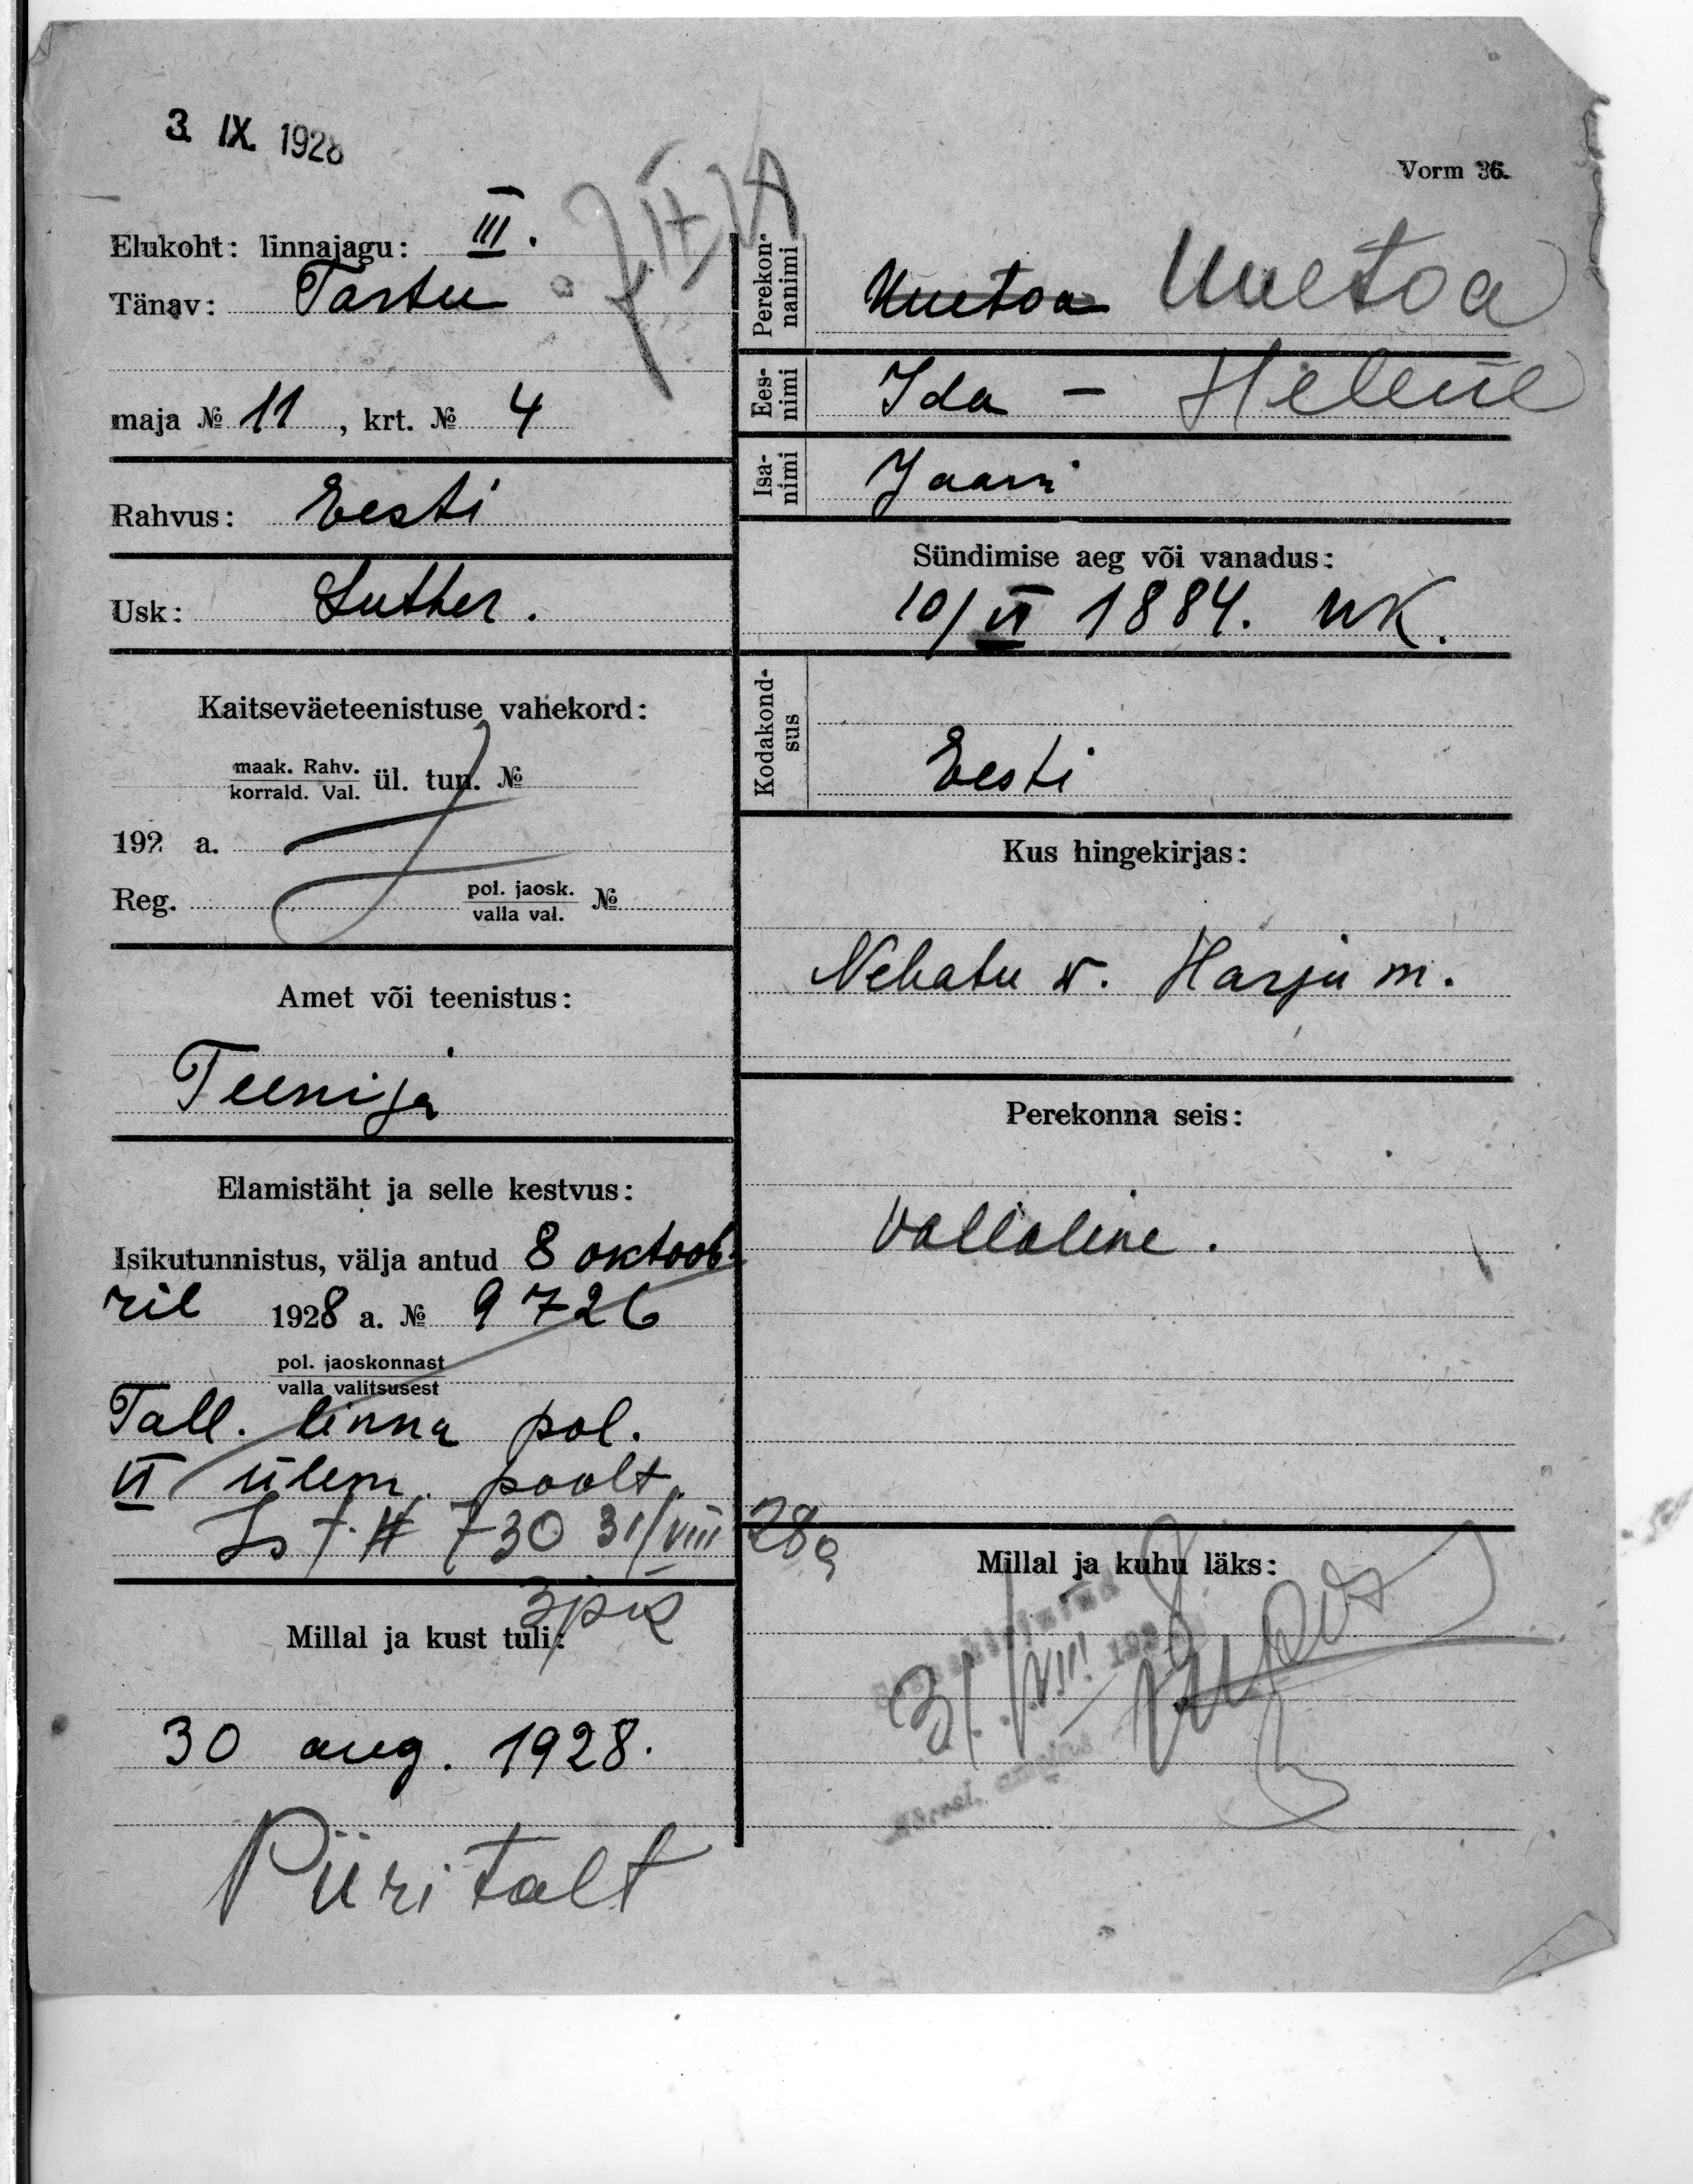 3. IX. 1928
Vorm 36.
Elukoht: linnajagu: III.
Tänav: Tartu
maja № 11, krt. № 4
Rahvus: Eesti
Usk: Luther.
Kaitseväeteenistuse vahekord:
maak. Rahv.
korrald. Val. ül. tun. №
192 a.
Reg. pol. jaosk.
valla val. №
Amet või teenistus:
Teenija
Elamistäht ja selle kestvus:
Isikutunnistus, välja antud 8 oktoob-
ril 1928 a. № 9726
pol. jaoskonnast
valla valitsusest
Tall. linna pol.
VI ülem. poolt.
730 31/VIII 28a
Millal ja kust tuli:
30 aug. 1928.
Piiritalt
Perekon-
nanimi
Uuetoa Uuetoa
Ees-
nimi
Ida - Helene
Isa-
nimi
Jaani
Sündimise aeg või vanadus:
10/VI 1884. UK.
Kodakond-
sus
Eesti
Kus hingekirjas:
Nehatu v. Harju m.
Perekonna seis:
Vallaline.
Millal ja kuhu läks:
31. VIII